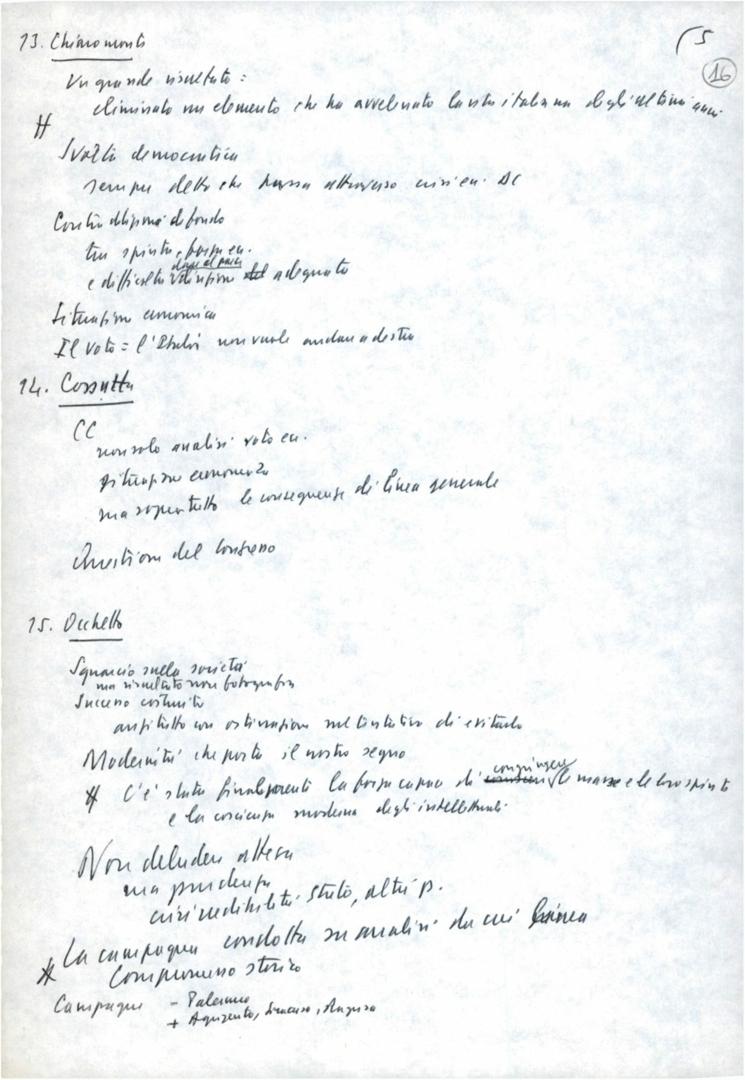 5
16
13. Chiaromonte
Un grande risultato:
eliminato un elemento che ha avvelenato la vita italiana degli ultimi anni
Svolta democratica
sempre detto che passa attraverso crisi eu. DC
Contraddizione di fondo
tra spinta, forze eu.
e difficoltà adeguato
Situazione economica
Il voto = l'Italia non vuole andare a destra
14. Cossutta
CC
non solo analisi voto eu.
situazione economica
ma soprattutto le conseguenze di linea generale
Questione del consenso
15. Occhetto
Squarcio sulla società
ma risultato non fotografia
Successo costruito
anzitutto con ostinazione nel tentativo di evitarlo
Modernità che porta il nostro segno
C'è stata finalmente la forza capace di congiungere le masse e le loro spinte
e la coscienza moderna degli intellettuali
Non deludere attesa
ma prudenza
crisi credibilità stato, altri p.
La campagna condotta su analisi da cui linea
Compromesso storico
Campagne - Palermo
+ Agrigento, Siracusa, Ragusa